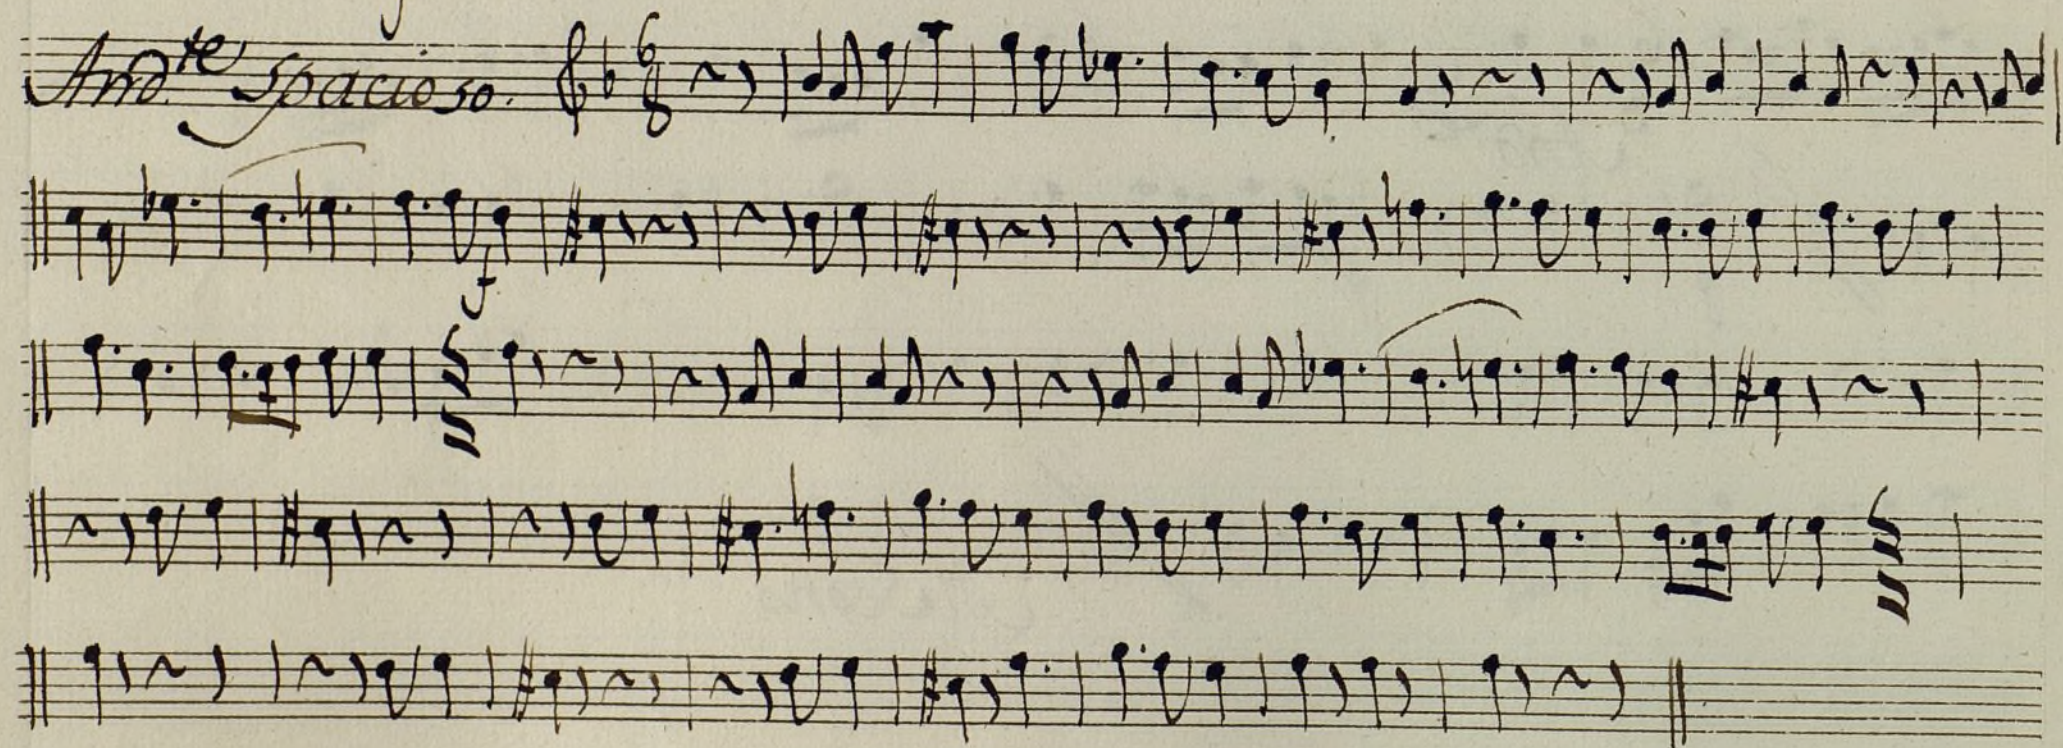 And.te Spacioso.
6
8
f